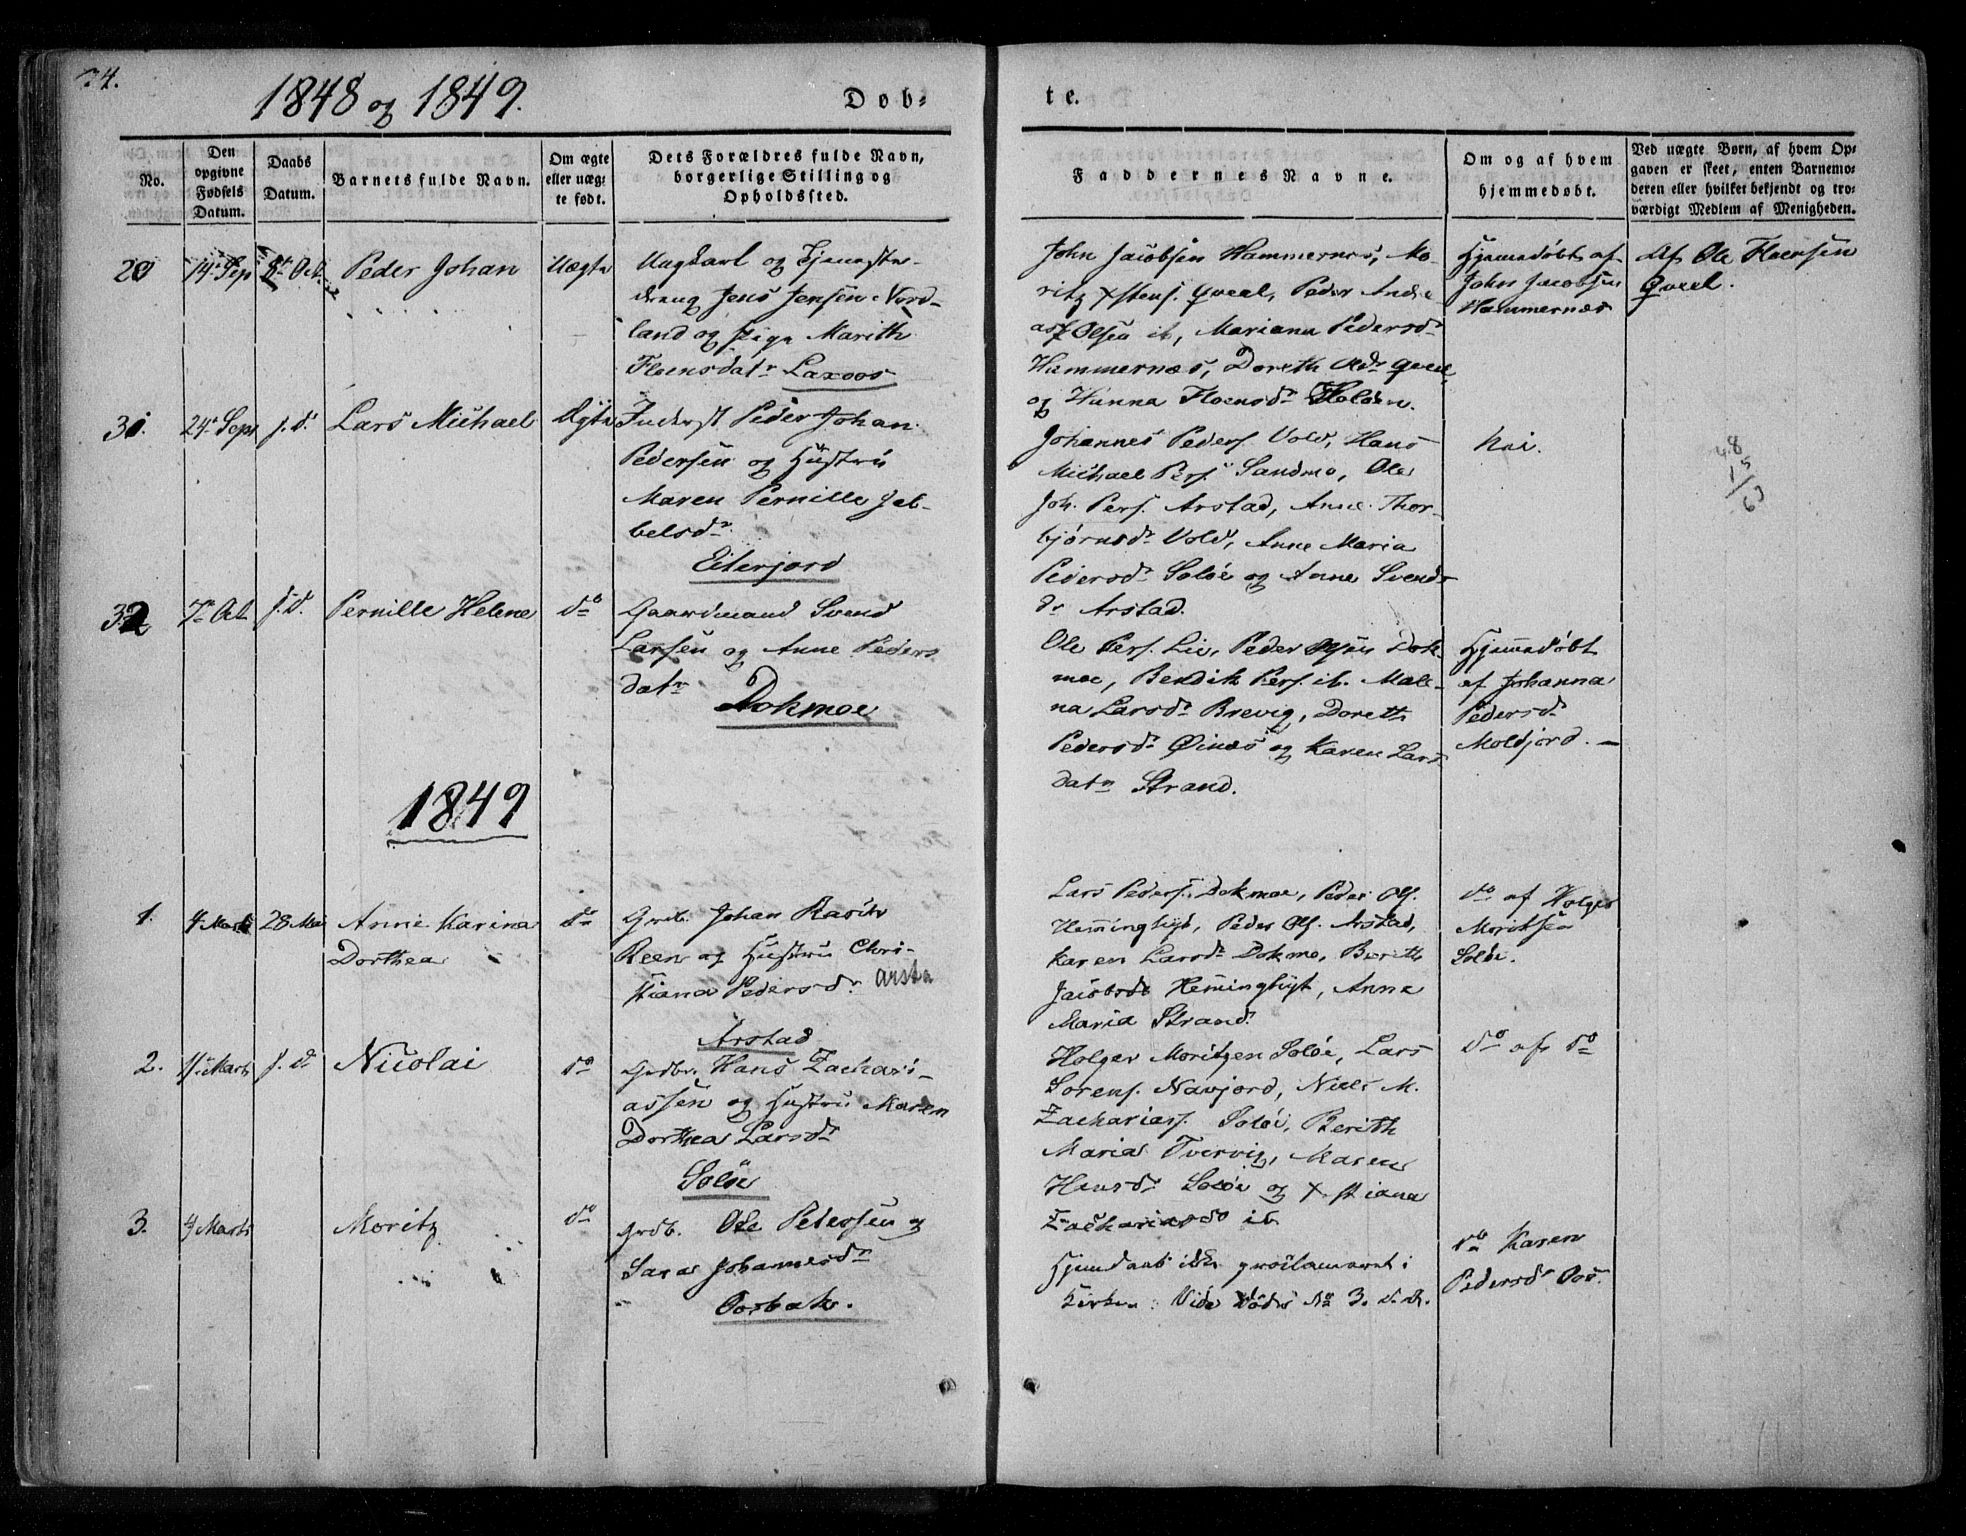 74.
1848 og 1849.
Døb-
te.
No.
Den
opgivne
Fødsels
Datum.
Daabs
Datum.
Barnets fulde Navn.
Om ægte
eller uæg-
te født.
Dets Forældres fulde Navn,
borgerlige Stilling og
Opholdssted.
Faddernes Navne.
Om og af hvem
hjemmedøbt.
Ved uægte Børn, af hvem Op-
gaven er skeet, enten Barnemo-
deren eller hvilket bekjendt og tro-
værdigt Medlem af Menigheden.
14 Sep
Oct.
Peder Johan
Uægte
Ungkarl og Tjeneste-
dreng Jens Jensen Nord-
land og Pige Marith
Floensdatr Laxoos
John Jacobsen Hammernes, Mo-
ritz Xstens. Qvæl, Peder Andre
as Olsen ib, Mariana Pedersdr
Hammernæs, Doreth Olsdr Qvæl,
og Hanna Floensdr Holden.
Hjemmedøbt af
John Jacobsen
Hammernæs
Af Ole Floensen
Qvæl.
31.
24 Sept
s. d.
Lars Michael
Ægte
Inderst Peder Johan
Pedersen og Hustru
Maren Pernille Jel-
belsdr
Eiterjord
Johannes Peders. Vold, Hans
Michael Pers. Sandmo, Ole
Joh. Pers. Arstad, Anne Thor-
bjørnsdr Vold, Anne Maria
Pedersdr Soløe og Anne Svends
dr Arstad.
Nei.
32
7 Oct
s. d.
Pernille Helene
do
Gaardmand Svend
Larsen og Anne Peders
datr
Dokmoe
Ole Pers. Lie, Peder Dok-
moe, Bendik Pers. ib. Male-
na Larsdr Brevig, Doreth
Pedersdr Øinæs og Karen Lars
datr Strand.
Hjemmedøbt
af Johanna
Pedersdr
Moldjord. —
1849
1.
4 Marts
28 Mai
Anne Karina
Dorthea
do
Grdb. Johan
Reen og Hustru Chri-
stiana Pedersdr Arsta
Arstad
Lars Peders. Dokmoe, Peder Ols.
Hemminghyt, Peder Ols. Arstad,
Karen Larsdr Dokmo, Berith
Jacobsdr Heminghyt, Anna
Maria Strand.
do af Holger
Moritsen
Soløe.
2.
11 Marts
s. d.
Nicolai
do
Grdbr. Hans Zachari-
assen og Hustru Maren
Dorthea Larsdr
Soløe
Holger Moritzen Soløe, Lars
Sorens. Navjord, Niels M.
Zachariass. Soløe, Berith
Maria Tvervig, Maren
Hansdr Soløe og Xstiana
Zachariasdr ib
do af do
3.
4 Marts
Moritz
do
Grdb. Ole Petersen og
Sara Johannesdr
Oosbak.
Hjemdaab ikke proclameret i
Kirken: Vide Døds No 3. d. A.
do Karen
Pedersdr Oos.